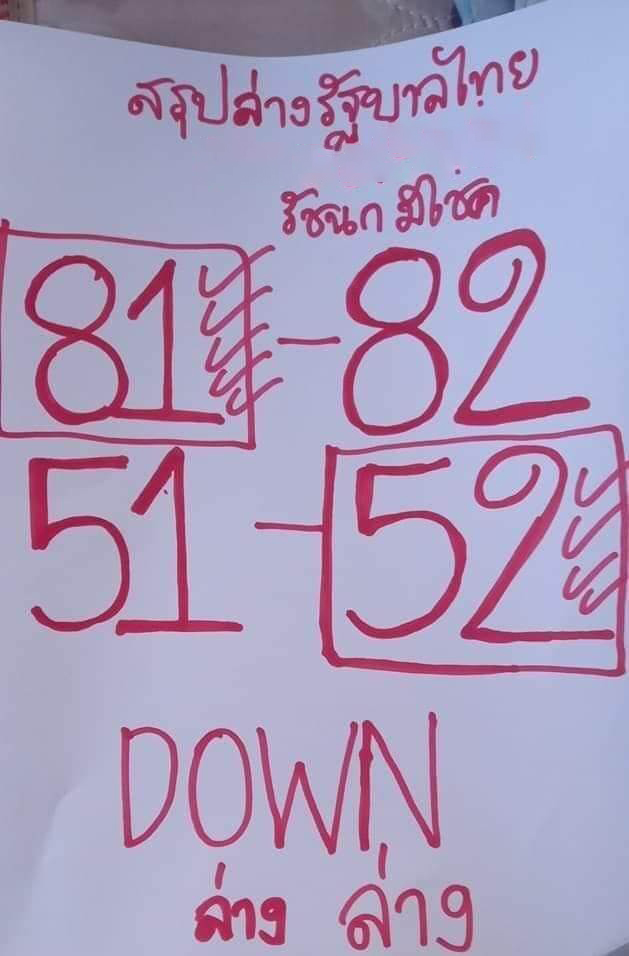 สรุปล่างรัฐบาลไทย
รัชนก มีโชค
81 - 82
51 - 52
DOWN
ล่าง ล่าง